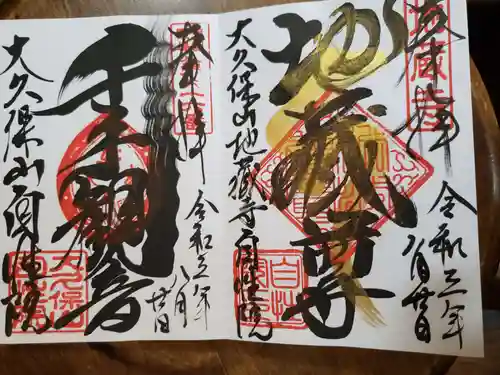 奉拝
令和三年
八月廿日
地蔵尊
大久保山地蔵寺自性院
奉拝
令和三年
八月廿日
千手観音
大久保山自性院